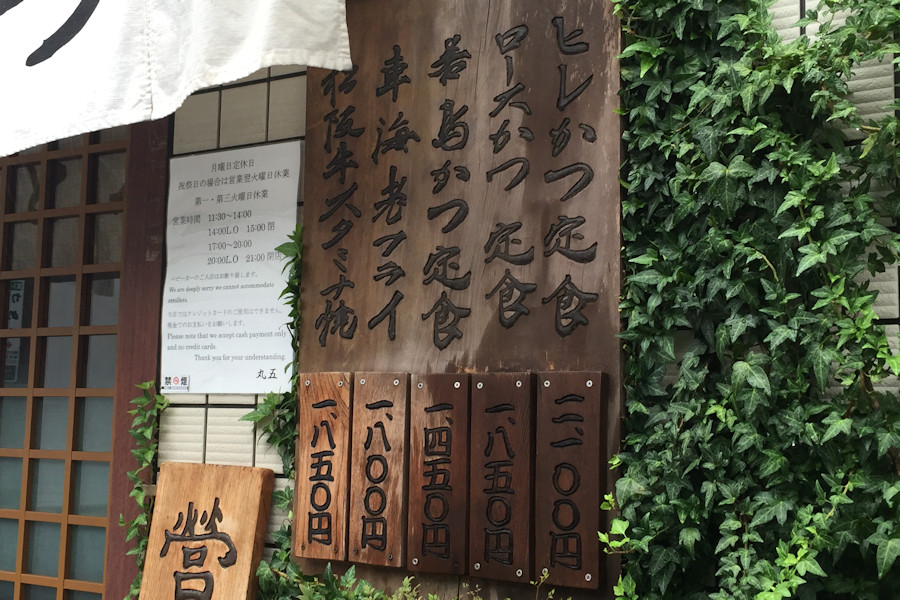 ヒレかつ定食
ロースかつ定食
若鳥かつ定食
車海老フライ
松阪牛スタミナ焼
二、一〇〇円
一、八五〇円
一、四五〇円
一、八〇〇円
一、八五〇円
月曜日定休日
祝祭日の場合は営業翌火曜日休業
第一・第三火曜日休業
営業時間 11:30～14:00
14:00L.O 15:00 閉
17:00～20:00
20:00L.O 21:00 閉店
ベビーカーのご入店はお断り致します。
We are deeply sorry we cannot accommodate
strollers.
当店ではクレジットカードのご使用はできません。
現金でのお支払いをお願いします。
Please note that we accept cash payment only
and no credit cards.
Thank you for your understanding.
丸五
禁煙
営